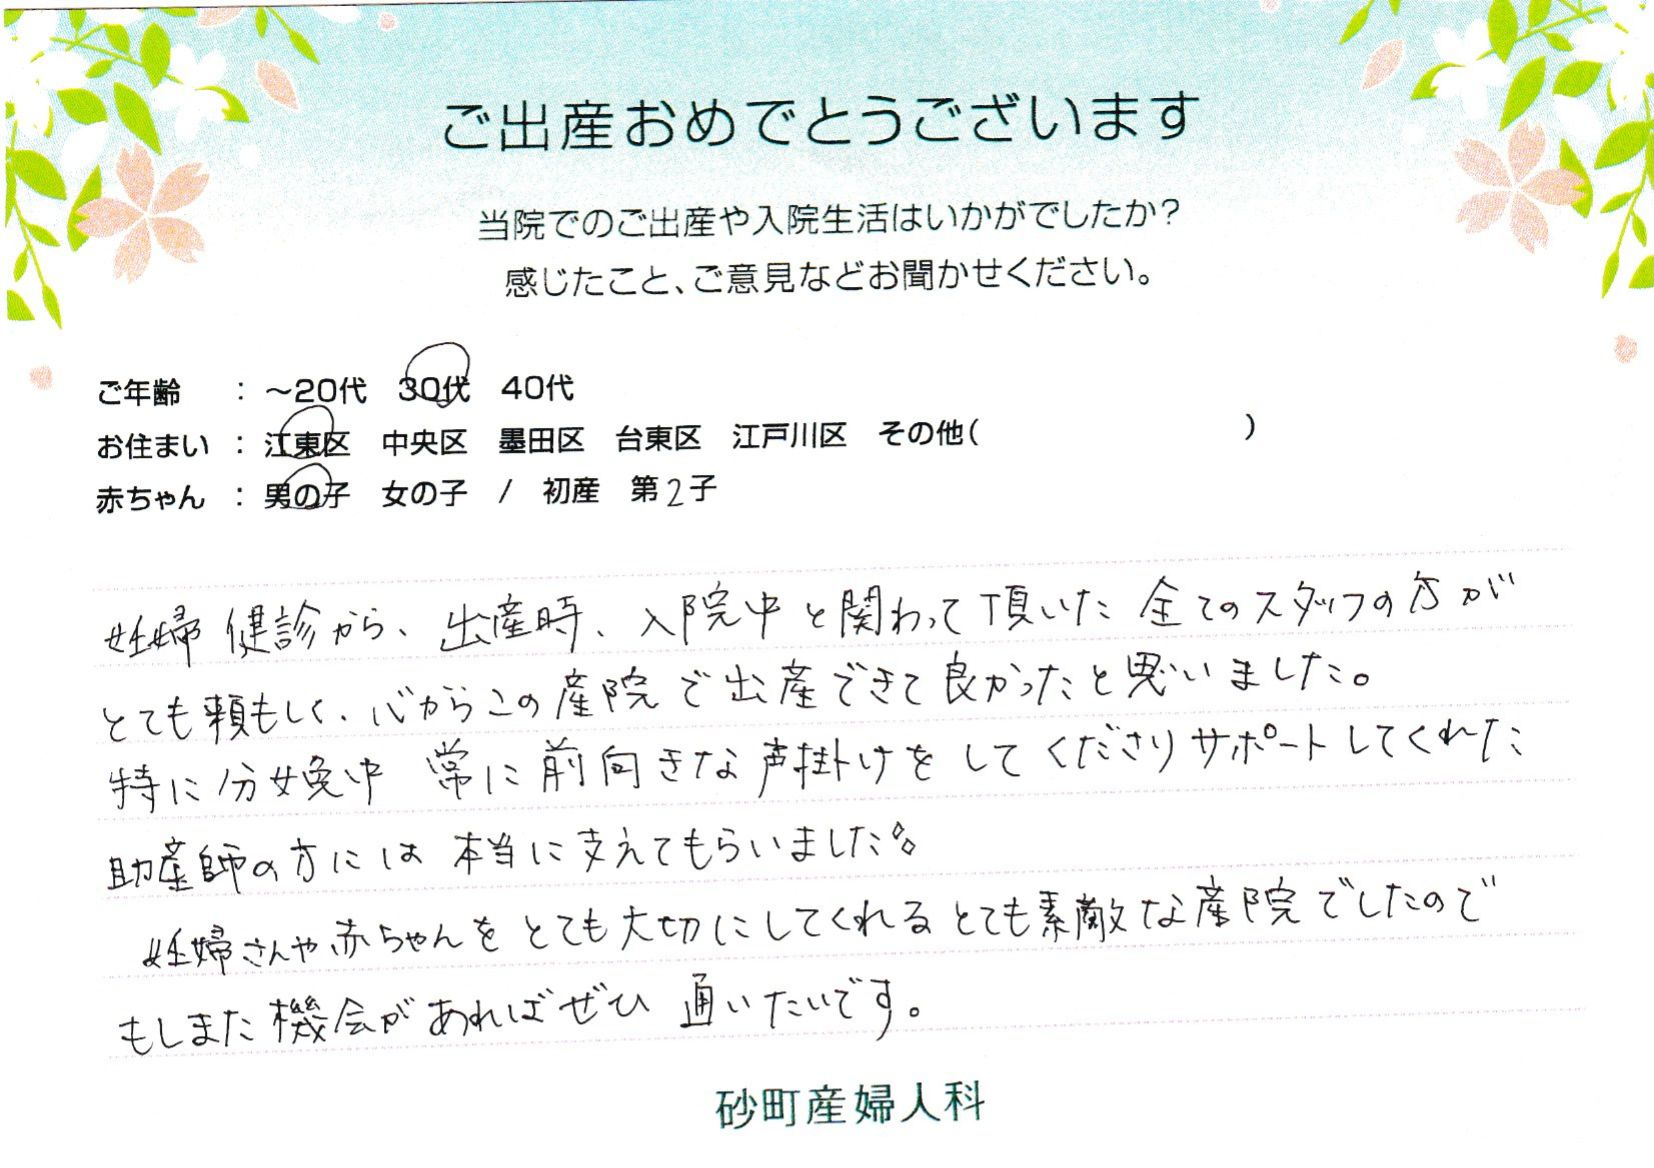 ご出産おめでとうございます
当院でのご出産や入院生活はいかがでしたか?
感じたこと、ご意見などお聞かせください。
ご年齢 : ～20代 30代 40代
お住まい : 江東区 中央区 墨田区 台東区 江戸川区 その他( )
赤ちゃん : 男の子 女の子 / 初産 第2子
妊婦健診から、出産時、入院中と関わって頂いた全てのスタッフの方が
とても頼もしく、心からこの産院で出産できて良かったと思いました。
特に分娩中 常に前向きな声掛けをしてくださりサポートしてくれた
助産師の方には本当に支えてもらいました。
妊婦さんや赤ちゃんをとても大切にしてくれるとても素敵な産院でしたので
もしまた機会があればぜひ通いたいです。
砂町産婦人科